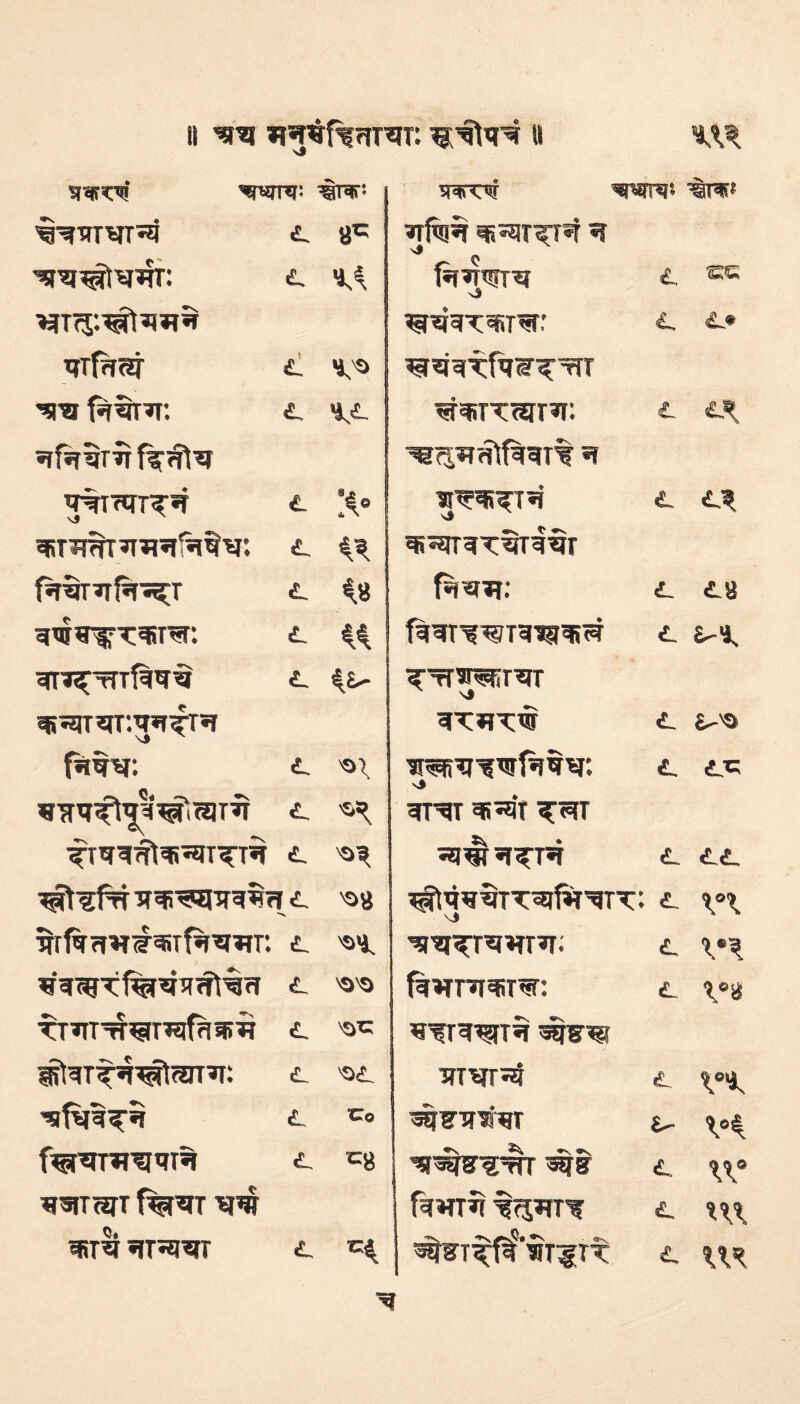 ॥ अथ मनुसंहितायाः सूचीपत्रं ॥
प्रकरणं अध्यायः श्लोकः
क्षेत्रप्राधान्यं ९ ४८
अथस्त्रीधर्माः ९ ५६
भ्रातुःस्त्रीगमने
पातित्यं ९ ५७
अथ नियोगः ९ ५९
ननियोगे द्वितीय
पुत्रोत्पादनं ९ ६०
कामतोगमननिषेधः ९ ६३
नियोगनिन्दा ९ ६४
वर्णसङ्करकालः ९ ६६
वाग्दत्ताविषये ९ ६९
कन्यायाःपुनर्दान
निषेधः ९ ७१
सप्तपदीपूर्वंस्त्रीत्यागे ९ ७२
दोषवतीकन्यादाने ९ ७३
स्त्रीवृत्तिंप्रकल्प्यप्रवसेत् ९ ७४
प्रोषितभर्तृकानियमाः ९ ७५
संवत्सरंस्त्रियंप्रतीक्षेत ९ ७७
रोगार्त्तस्वाम्यतिक्रमे ९ ७८
क्लीवादेर्नस्त्रीत्यागः ९ ७९
अधिवेदने ९ ८०
स्त्रियामद्यपाने ९ ८४
सजात्या स्त्रिया धर्मं
कार्यं नान्यया ९ ८६
प्रकरणं अध्यायः श्लोकः
गुणिने कन्यादानं न
निर्गुणाय ९ ८८
स्वयंवरकालः ९ ९०
स्वयंवरेपितृदत्ता
लंकारत्यागः ९ ९२
ऋतुमतीविवाहे न
शुल्कदानं ९ ९३
कन्यावरयोर्वयो
नियमः ९ ९४
विवाहस्यावश्यकत्वं ९ ९५
दत्तशुल्काया
वरमरणे ९ ९७
शुल्कग्रहणनिषेधः ९ ९८
वाचा कन्यां दत्त्वा
अन्यस्मै नदानं ९ ९९
स्त्रीपुंसयोरव्यभिचारः ९ १०१
अथदायभागः ९ १०३
विभागकालः ९ १०४
सहावस्थाने ज्येष्ठस्य
प्राधान्यं ९ १०५
ज्येष्ठप्रशंसा ९ १०६
अज्येष्ठवृत्तौ ज्येष्ठे ९ ११०
विभागे हेतुमाह ९ १११
ज्येष्ठादेर्विंशोद्धारे ९ ११२